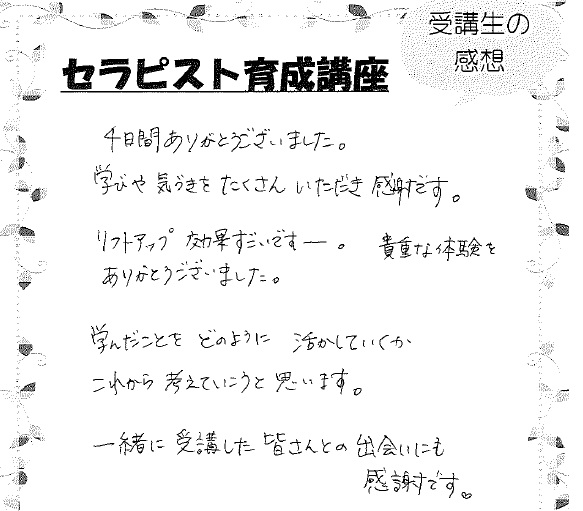 受講生の
感想
セラピスト育成講座
4日間ありがとうございました。
学びや 気づきを たくさん いただき 感謝です。
リフトアップ 効果すごいですー。 貴重な体験を
ありがとうございました。
学んだことを どのように 活かしていくか
これから 考えていこうと 思います。
一緒に 受講した 皆さんとの 出会いにも
感謝です。